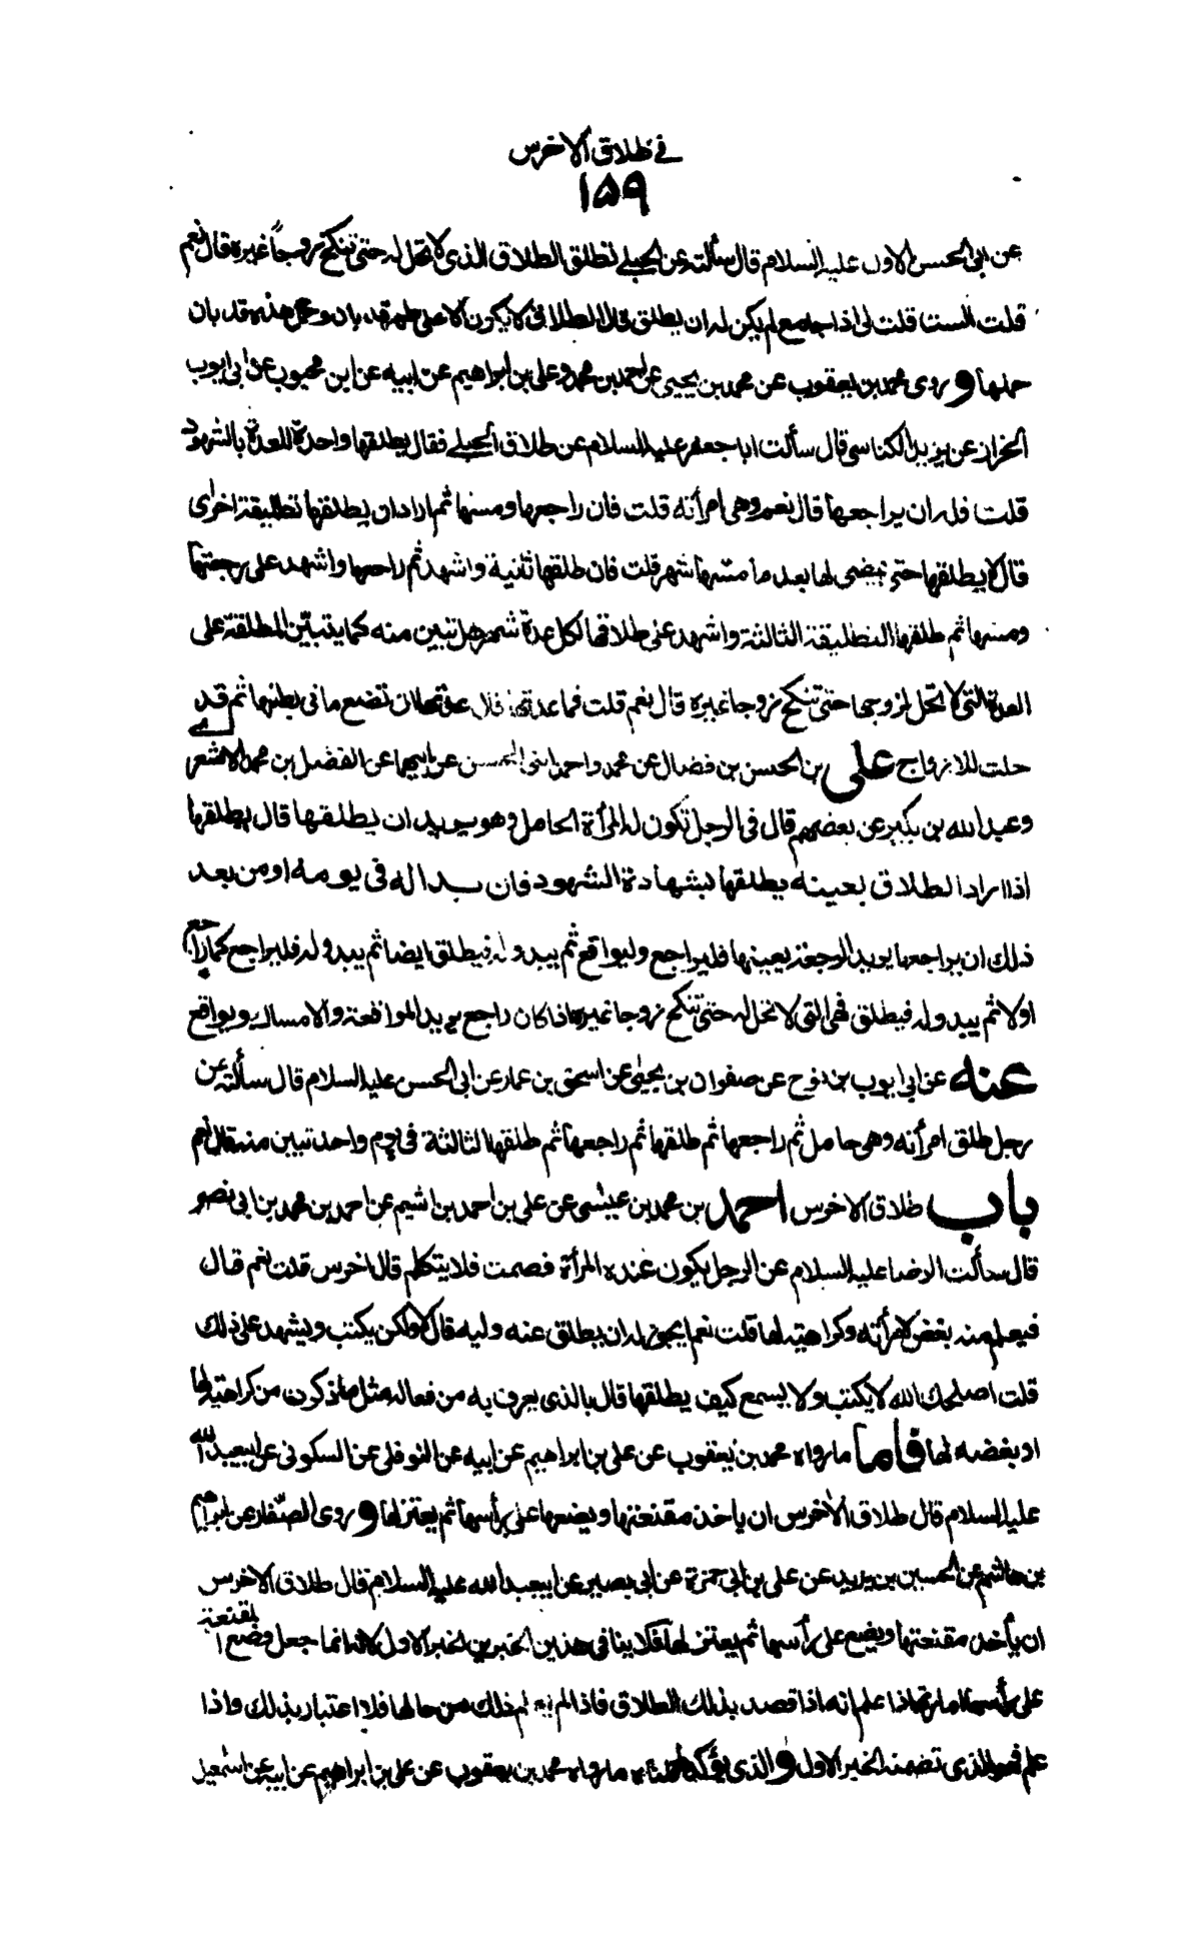 في طلاق الاخرس
١٥٩
عن ابي الحسن الاول عليه السلام قال سألته عن الحبلى تطلق الطلاق الذي لا تحل له حتى تنكح زوجاً غيره قال نعم
قلت الست قلت لي اذا جامع لم يكن له ان يطلق قال الطلاق لا يكون الا على طهر قد بان وحمل هذه قد بان
حملها و روى محمد بن يعقوب عن محمد بن يحيى عن احمد بن محمد وعلي بن ابراهيم عن ابيه عن ابن محبوب عن ابي ايوب
الخزاز عن يزيد الكناسي قال سألت ابا جعفر عليه السلام عن طلاق الحبلى فقال يطلقها واحدة للعدة بالشهود
قلت فله ان يراجعها قال نعم وهي امرأته قلت فان راجعها ومسها ثم اراد ان يطلقها تطليقة اخرى
قال لا يطلقها حتى يمضي لها بعد ما مسها شهر قلت فان طلقها ثانية واشهد ثم راجعها واشهد على رجعتها
ومسها ثم طلقها التطليقة الثالثة واشهد على طلاقها لكل عدة شهر هل تبين منه كما يتبين المطلقة على
العدة التي لا تحل لزوجها حتى تنكح زوجا غيره قال نعم قلت فما عدتها قال عدتها ان تضع ما في بطنها ثم قد
حلت للازواج على بن الحسن بن فضال عن محمد واحمد ابنى الحسن عن ابيهما عن الفضل بن محمد الاشعري
وعبد الله بن بكير عن بعضهم قال في الرجل تكون له المرأة الحامل وهو يريد ان يطلقها قال يطلقها
اذا اراد الطلاق بعينه يطلقها بشهادة الشهود فان بدا له في يومه او من بعد
ذلك ان يراجعها يريد الرجعة بعينها فليراجع وليواقع ثم يبدو له فيطلق ايضا ثم يبدو له فليراجع كما راجع
اولا ثم يبدو له فيطلق فهي التي لا تحل له حتى تنكح زوجا غيره اذا كان راجع يريد المواقعة والامساك ويواقع
عنه عن ايوب بن نوح عن صفوان بن يحيى عن اسحق بن عمار عن ابي الحسن عليه السلام قال سألته عن
رجل طلق امرأته وهي حامل ثم راجعها ثم طلقها ثم راجعها ثم طلقها الثالثة في يوم واحد تبين منه قال نعم
باب طلاق الاخرس احمد بن محمد بن عيسى عن علي بن احمد بن اشيم عن احمد بن محمد بن ابي نصر
قال سألت الرضا عليه السلام عن الرجل يكون عنده المرأة فصمت فلا يتكلم قال اخرس قلت نعم قال
فيعلم منه بغض لامرأته وكراهية لها قلت نعم ايجوز له ان يطلق عنه وليه قال لا ولكن يكتب ويشهد على ذلك
قلت اصلحك الله لا يكتب ولا يسمع كيف يطلقها قال بالذي يعرف به من فعاله مثل ما ذكرت من كراهيته لها
او بغضه لها فاما ما رواه محمد بن يعقوب عن علي بن ابراهيم عن ابيه عن النوفلي عن السكوني عن ابيعبد الله
عليه السلام قال طلاق الاخرس ان ياخذ مقنعتها ويضعها على رأسها ثم يعتزلها و روى الصفار عن ابراهيم
بن هاشم عن الحسين بن يزيد عن علي بن ابي حمزة عن ابي بصير عن ابيعبد الله عليه السلام قال طلاق الاخرس
ان يأخذ مقنعتها ويضع على رأسها ثم يعتزلها فلا ينافي هذين الخبرين الخبر الاول لانه انما جعل وضع المقنعة
على رأسها امارة اذا علم انه اذا قصد بذلك الطلاق فاذا لم يعلم ذلك من حالها فلا اعتبار بذلك واذا
علم فهو الذي تضمنه الخبر الاول والذي يؤكد ما رواه محمد بن يعقوب عن علي بن ابراهيم عن ابيه عن اسمعيل